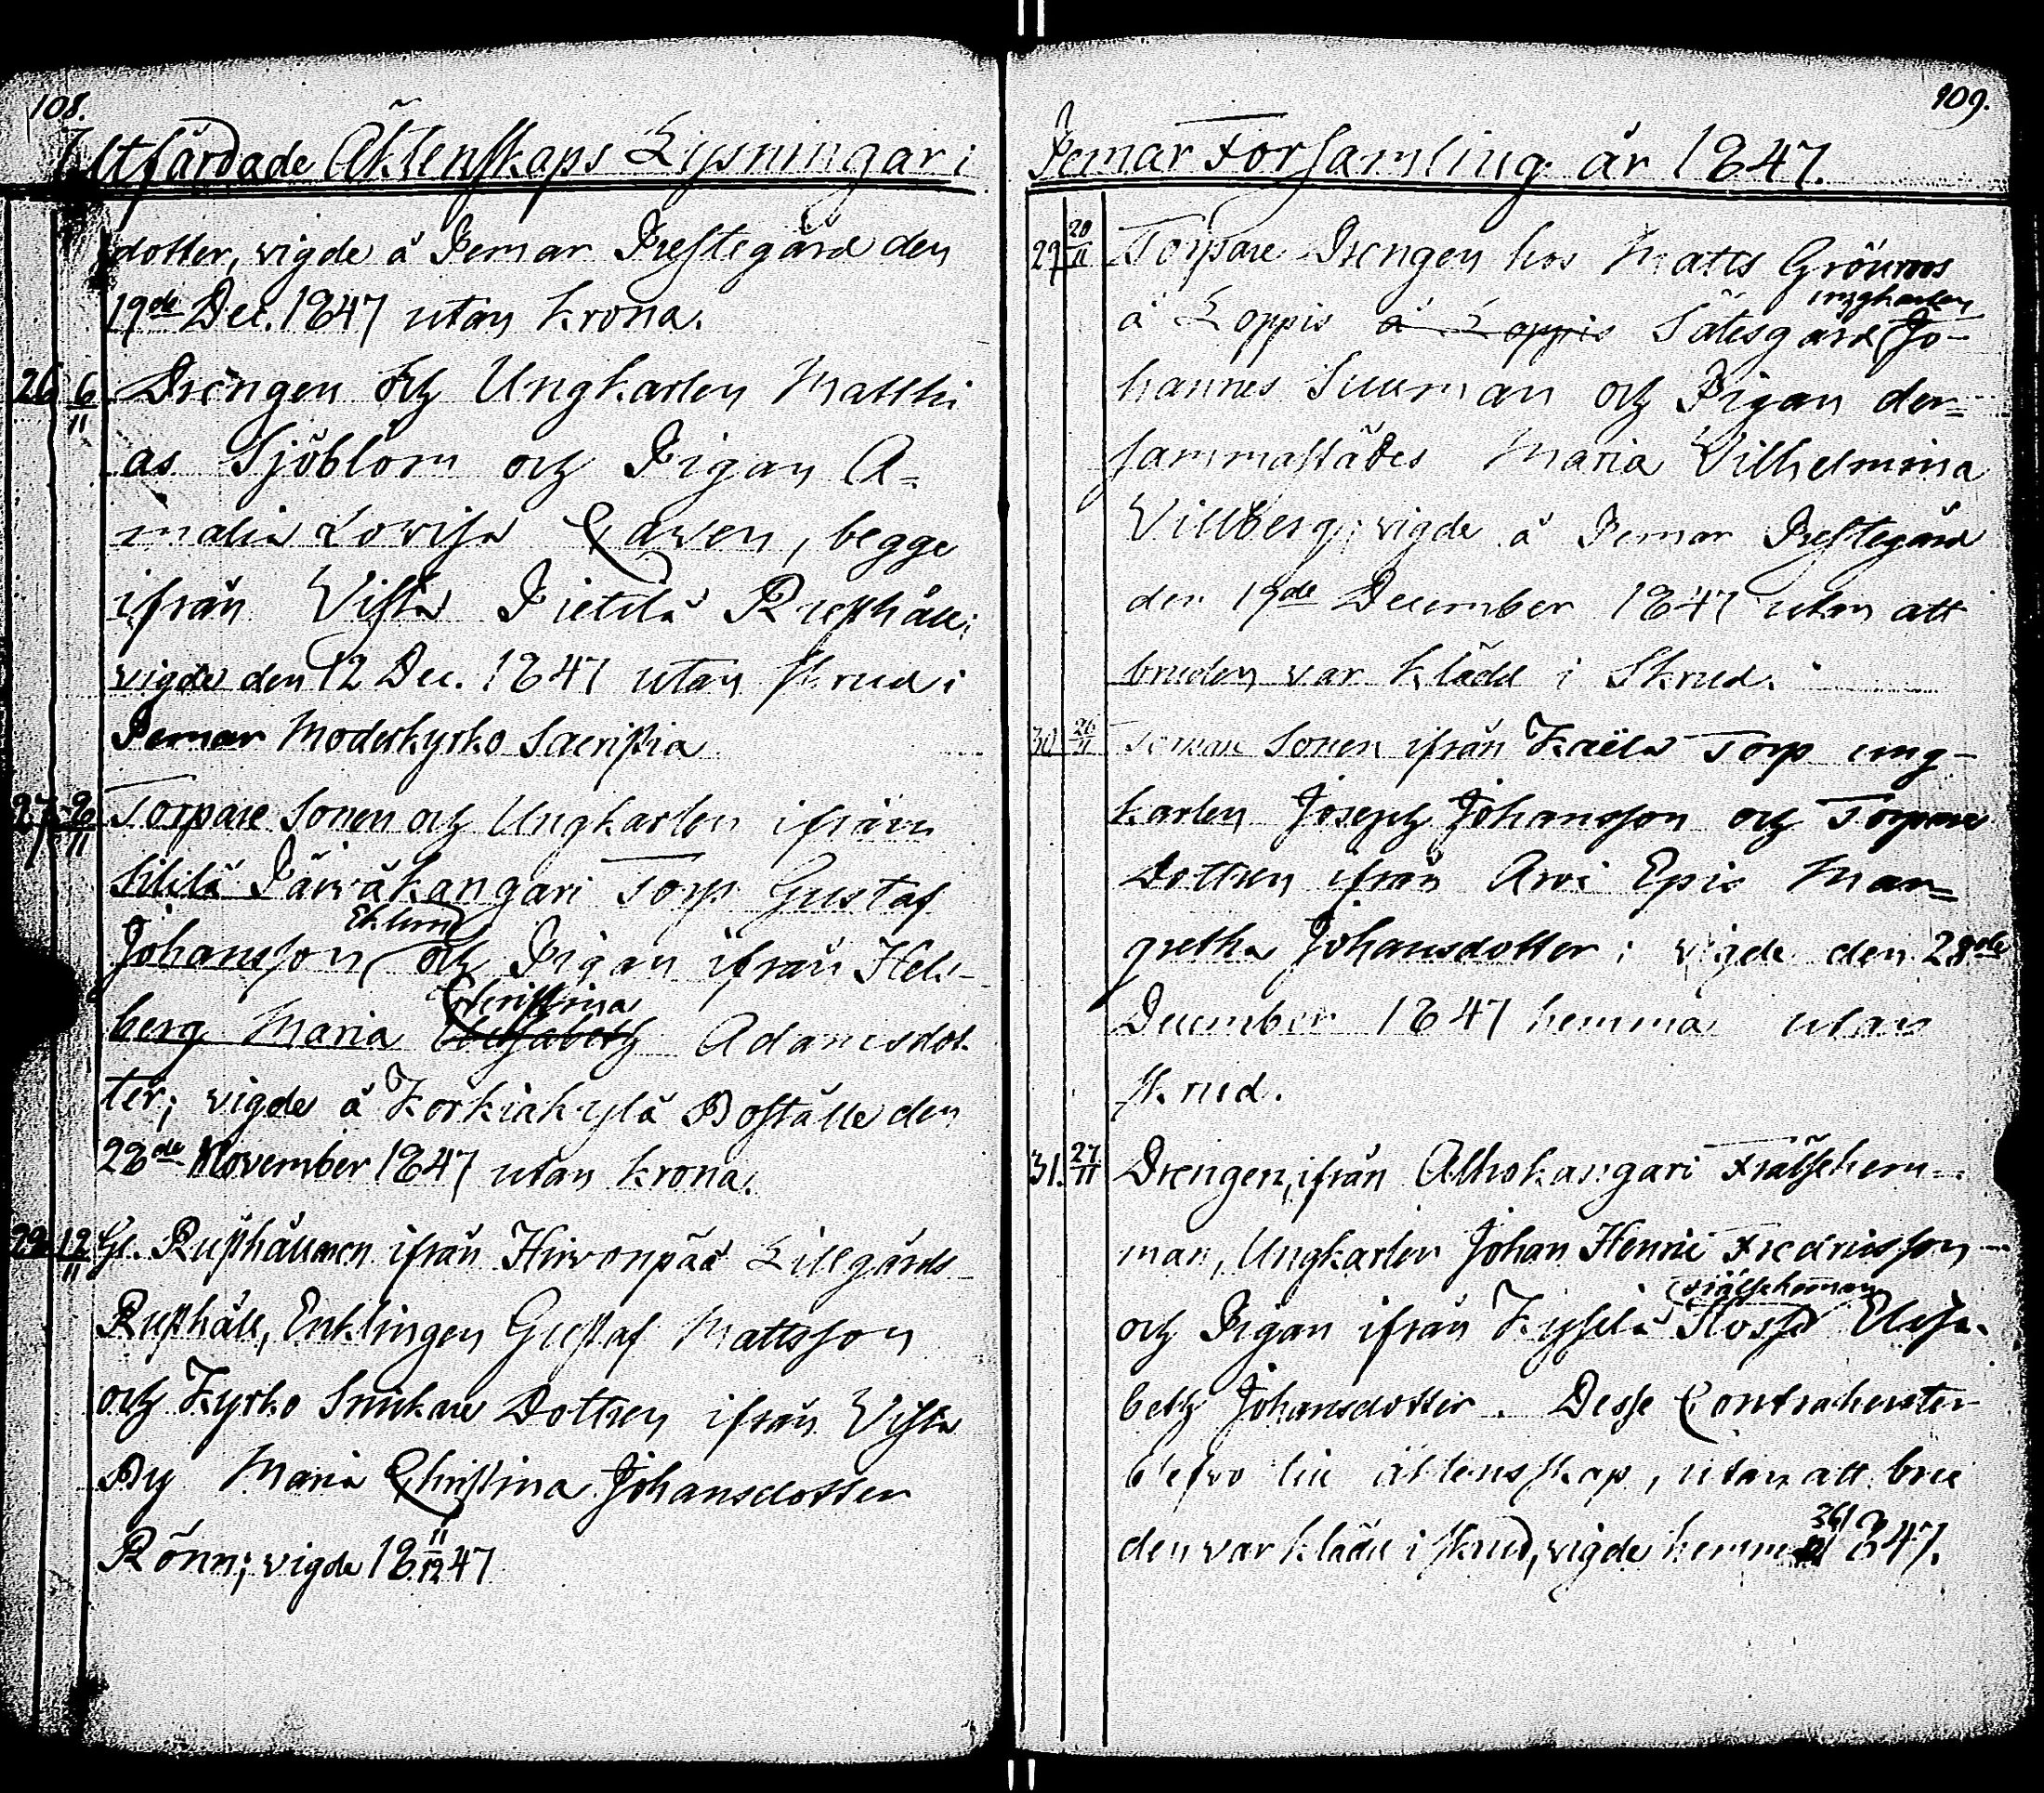 108.
Utfärdade Äktenskaps Lysningar i
dotter, vigde å Pemar Prestegård den
19de Dec. 1847 utan krona.
26 6/11 Drengen och Ungkarlen Matthi
as Sjöblom och Pigan A-
malia Lovisa Caven, begge
ifrån Vista Pietilä Rusthåll;
vigde den 12 Dec. 1847 utan skrud i
Pemar Moderkyrko Sacristia
27 /11 Torpare Sonen och Ungkarlen ifrån
Päiväkangari Torp Gustaf
Eklund
Johansson och Pigan ifrån Hels-
Christina
berg Maria Elisabeth Adamsdot
ter; vigde å Korkiakylä Boställe den
28de November 1847 utan krona.
12/11 Gl. Rusthållaren ifrån Hirvonpää Lillgårds
Rusthåll, Enklingen Gustaf Mattsson
och Kyrko Snickare Dottren ifrån Vista
By Maria Christina Johansdotter
Rönn; vigde 18 11/12 47
109.
Pemar Församling år 1847.
29 20/11 Torpare Drengen hos Matts Grönroos
ungkarlen
å Loppis å Loppis Sätesgård Jo-
hannes Suuman och Pigan der-
sammastädes Maria Vilhelmina
Villberg; vigde å Pemar Prestegård
den 19de December 1847 utan att
bruden var klädd i Skrud.
30 26/11 Sonen ifrån Kaila Torp ung-
karlen Joseph Johansson och Torpare
Dottren ifrån Arvi Epis Mar-
gretha Johansdotter; vigde den 28de
December 1847 hemma utan
skrud.
31. 27/11 Drengen, ifrån Alhokangari Frälsehem-
man, Ungkarlen Johan Henric Fredricsson
frälsehemman
och Pigan ifrån Kyselä Elisa-
beth Johansdotter. Desse Contrahenter
blefvo i äktenskap, utan att bru
den var klädd i skrud, vigde hemma 847.